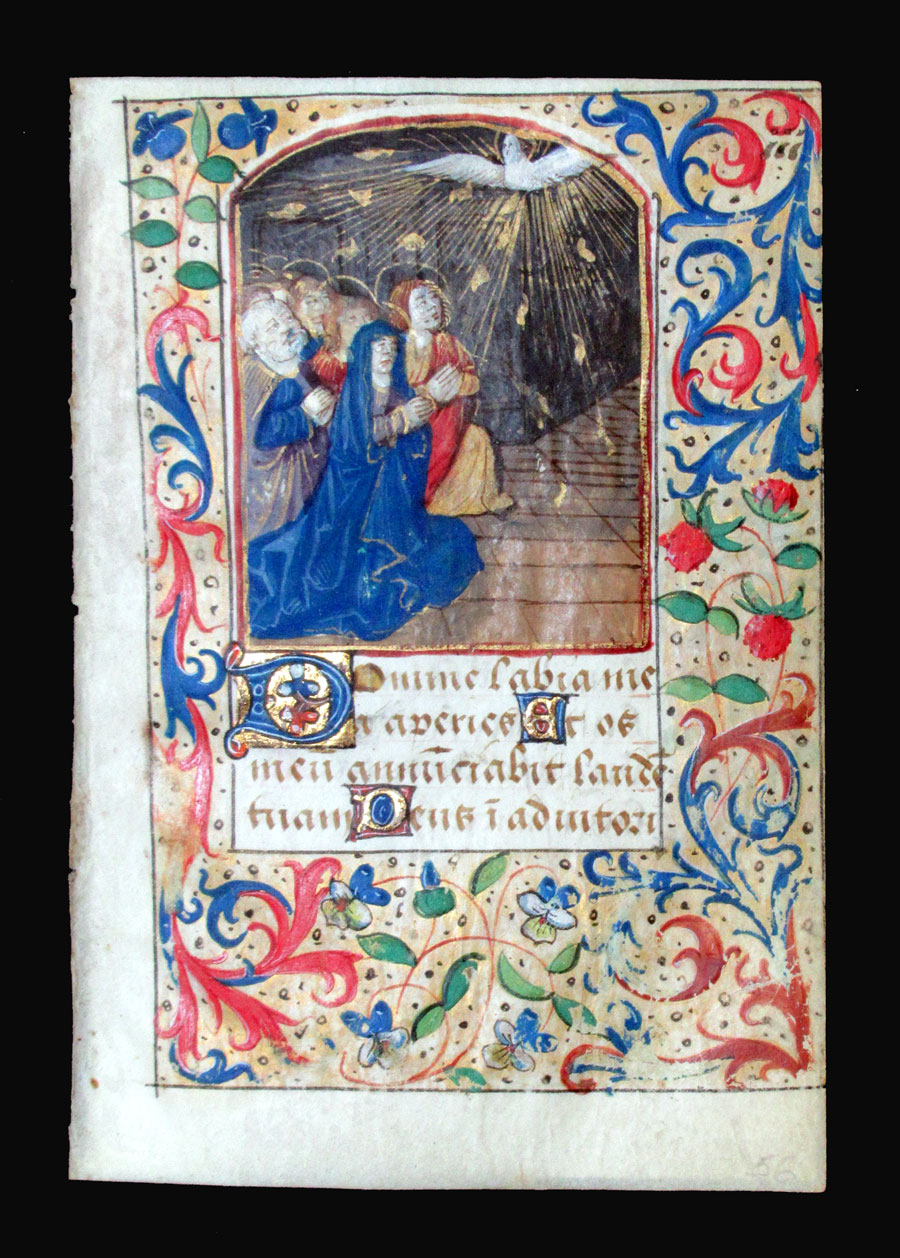 Domine labia me
a aperies Et os
meū annūciabit laudē
tuam Deus ī adiutori
56